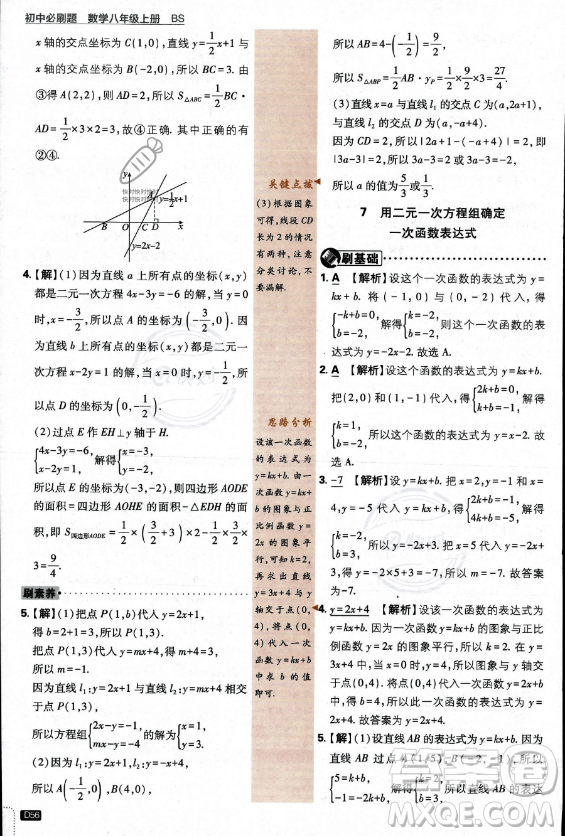 初中必刷题 数学八年级上册 BS
x轴的交点坐标为C(1,0),直线y=1/2x+1与
x轴的交点坐标为B(-2,0),所以BC=3.由
③得A(2,2),则AD=2,所以S△ABC=1/2BC·
AD=1/2×3×2=3,故④正确.其中正确的有
②④.
y
y=1/2x+1
A
B
O
C
D
x
y=2x-2
4.【解】(1)因为直线a上所有点的坐标(x,y)
都是二元一次方程4x-3y=-6的解,当x=0
时,
为直线b上所有点的坐标(x,y)都是二元一
次方程x-2y=1的解,当x=0时,y=-1/2,所
以点D的坐标为(0,-1/2).
(2)过点E作EH⊥y轴于H.
{4x-3y=-6, x-2y=1, 解得{x=-3, y=-2,
所以点E的坐标为(-3,-2),则四边形AODE
的面积=四边形AOHE的面积-△EDH的面
积,即S四边形AODE=1/2×(3/2+3)×2-1/2×3/2×
3=9/4.
刷素养
5.【解】(1)把点P(1,b)代入y=2x+1,
得b=2+1=3.
把点P(1,3)代入y=mx+4,得m+4=3,
所以m=-1.
因为直线l₁:y=2x+1与直线l₂:y=mx+4相交
于点P(1,3),
所以方程组{2x-y=-1, mx-y=-4的解为{x=1, y=3.
(2)因为l₁:y=2x+1,l₂:y=-x+4,
所以A(-1/2,0),B(4,0),
D56
关键点拔
(3)根据图象
可得,线段CD
长为2的情况
有两种,注意
分类讨论,不
要漏解.
思路分析
设该一次函数
的表达式为
y=kx+b,根据
一次函数
y=kx+b
的图象与正
比例函数y=
2x的图象平
行,可求得k.
再求出直线
y=3x+4与y
轴交于点(0,
4),将点(0,
4)代入一次
函数y=kx+b
中求b的值
即可.
所以AB=4-(-1/2)=9/2,
所以S△ABP=1/2AB·yP=1/2×9/2×3=27/4.
(3)直线x=a与直线l₁的交点C为(a,2a+1),
与直线l₂的交点D为(a,-a+4).
因为CD=2,所以|2a+1-(-a+4)|=2,即
|3a-3|=2,所以3a-3=2或3a-3=-2,
所以a的值为5/3或1/3.
7 用二元一次方程组确定
一次函数表达式
刷基础
1. A 【解析】设这个一次函数的表达式为y=
kx+b.将(-1,0)与(0,-2)代入,得
{-k+b=0, b=-2, 解得{k=-2, b=-2,则这个一次函数的表
达式为y=-2x-2.故选A.
2. A 【解析】设这个一次函数的表达式为y=kx+b.
把(2,0)和(1,-1)代入,得{2k+b=0, k+b=-1,解得
{k=1, b=-2,所以这个一次函数的表达式为y=x-2.故
选A.
3. -7 【解析】设y=kx+b.把x=2,y=-1和x=
0,y=3代入,得{2k+b=-1, b=3,解得{k=-2, b=3,所以
y=-2x+3.当x=5时,y=-2×5+3=-7.故答案
为-7.
4. y=2x+4 【解析】设该一次函数的表达式为
y=kx+b.因为该一次函数的图象与正比
例函数y=2x的图象平行,所以k=2.在y=
3x+4中,令x=0,则y=4,所以该图象与y轴交
于点(0,4).将点(0,4)代入y=2x+b,得b=4,
所以该一次函数的表达式为y=2x+4.故答案为
y=2x+4.
5.【解】(1)设直线AB的表达式为y=kx+b.
因为直线AB过点A(1,5),B(-2,-1),所以
{5=k+b, -1=-2k+b,解得{k=2, b=3,所以直线AB的表达